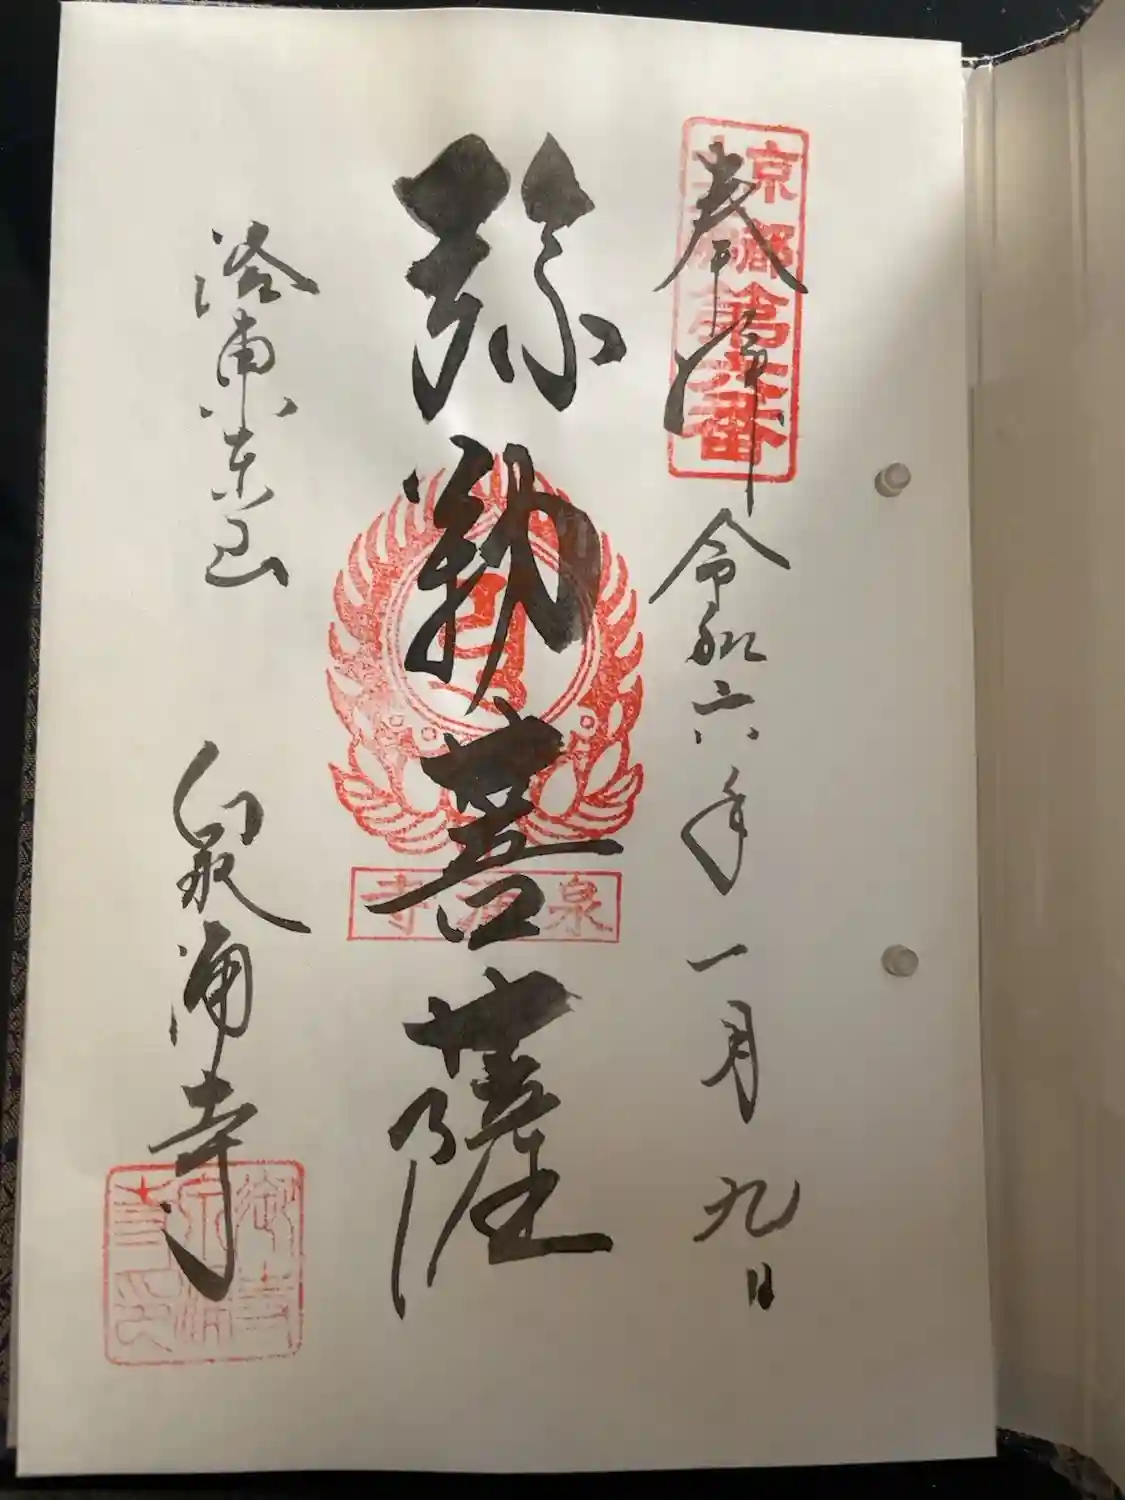 京都
十三佛
第六番
奉拝 令和六年一月九日
弥勒菩薩
泉涌寺
洛南東山 泉涌寺
御寺泉涌寺印